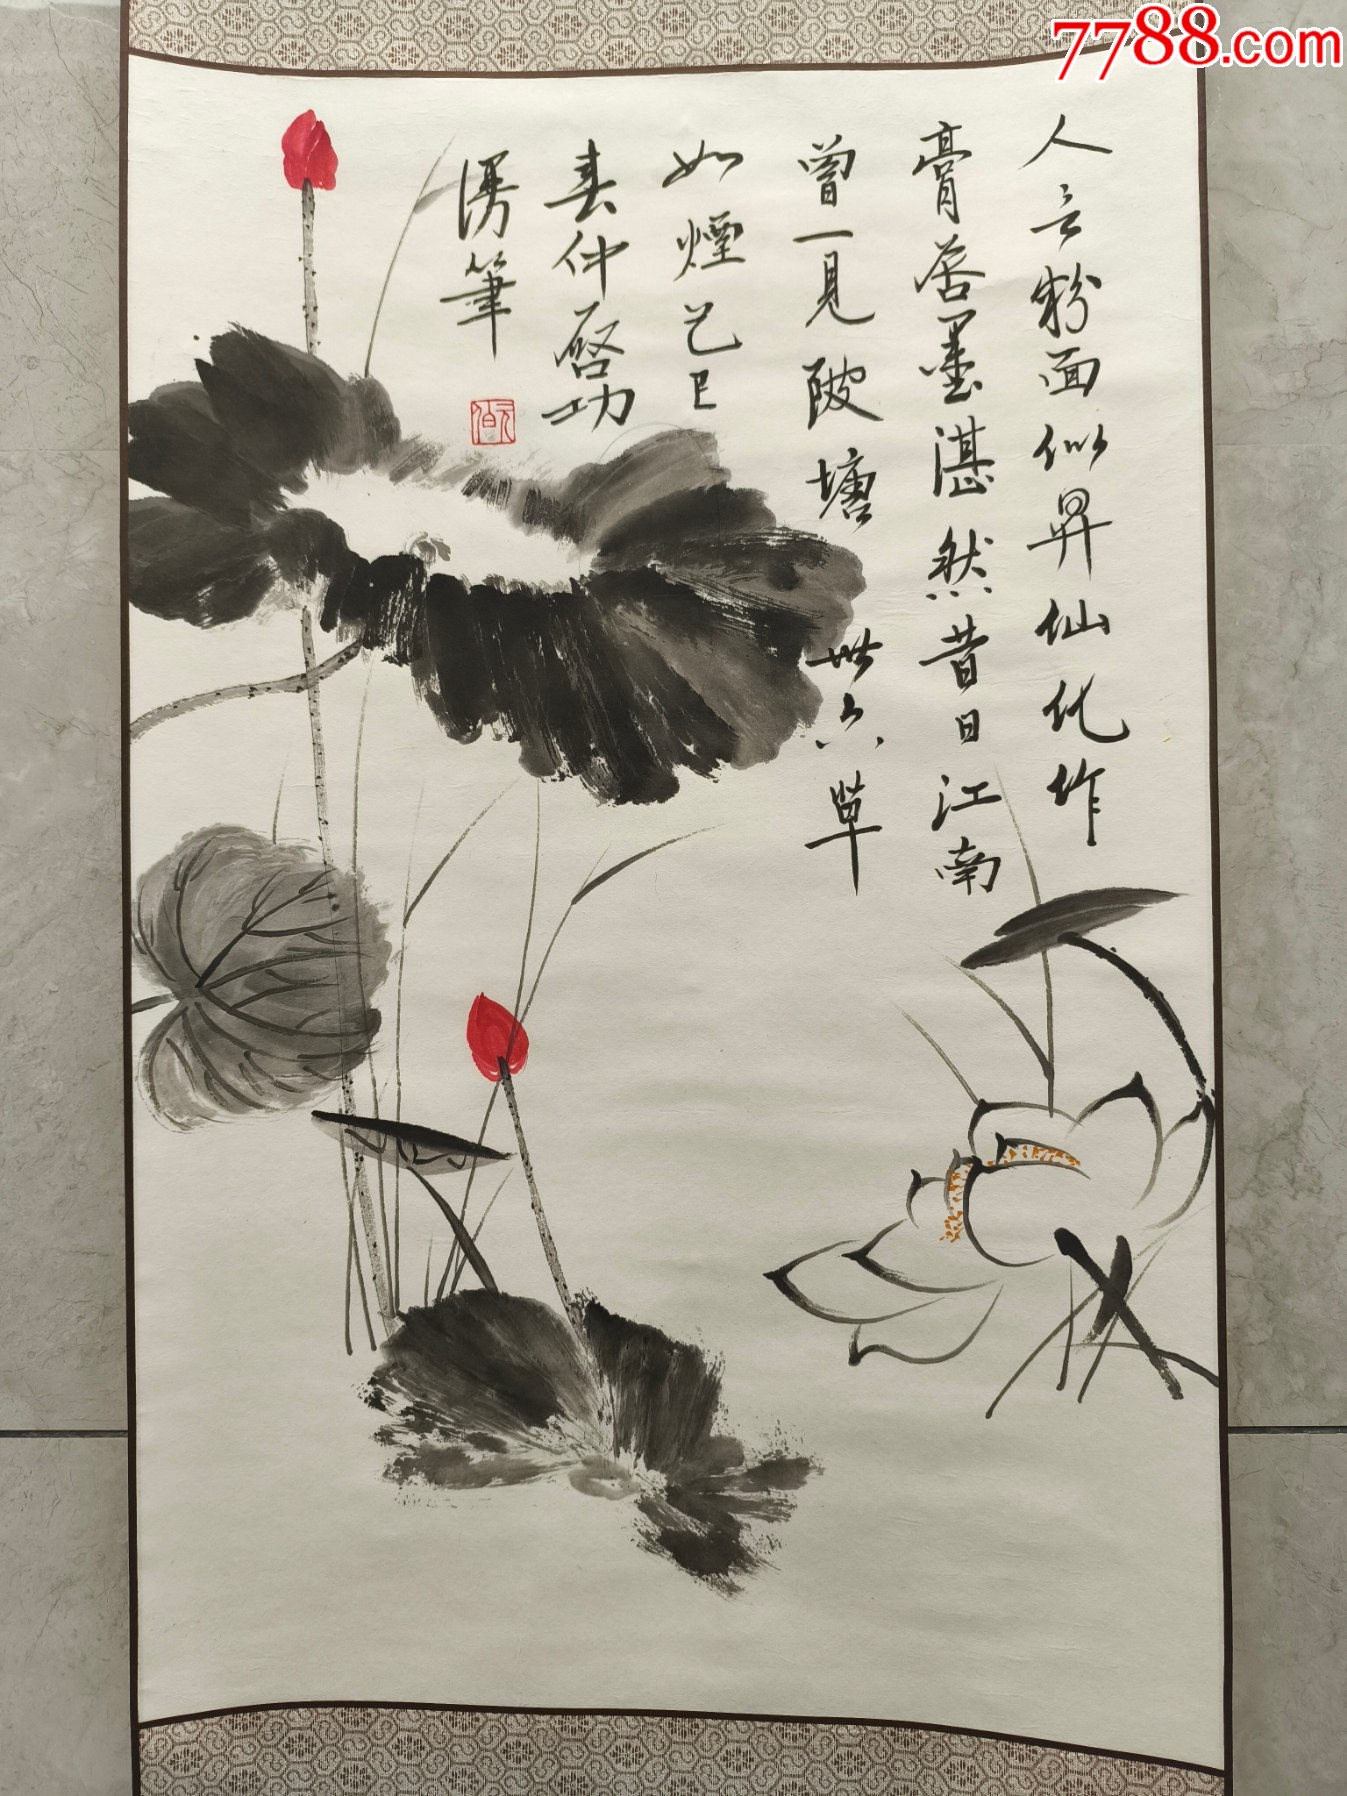 7788.com
人言粉面似昇仙化作
膏唇墨湛然昔日江南
曾一見陂塘廿六草
如煙己巳
春仲啓功
漫筆
元白